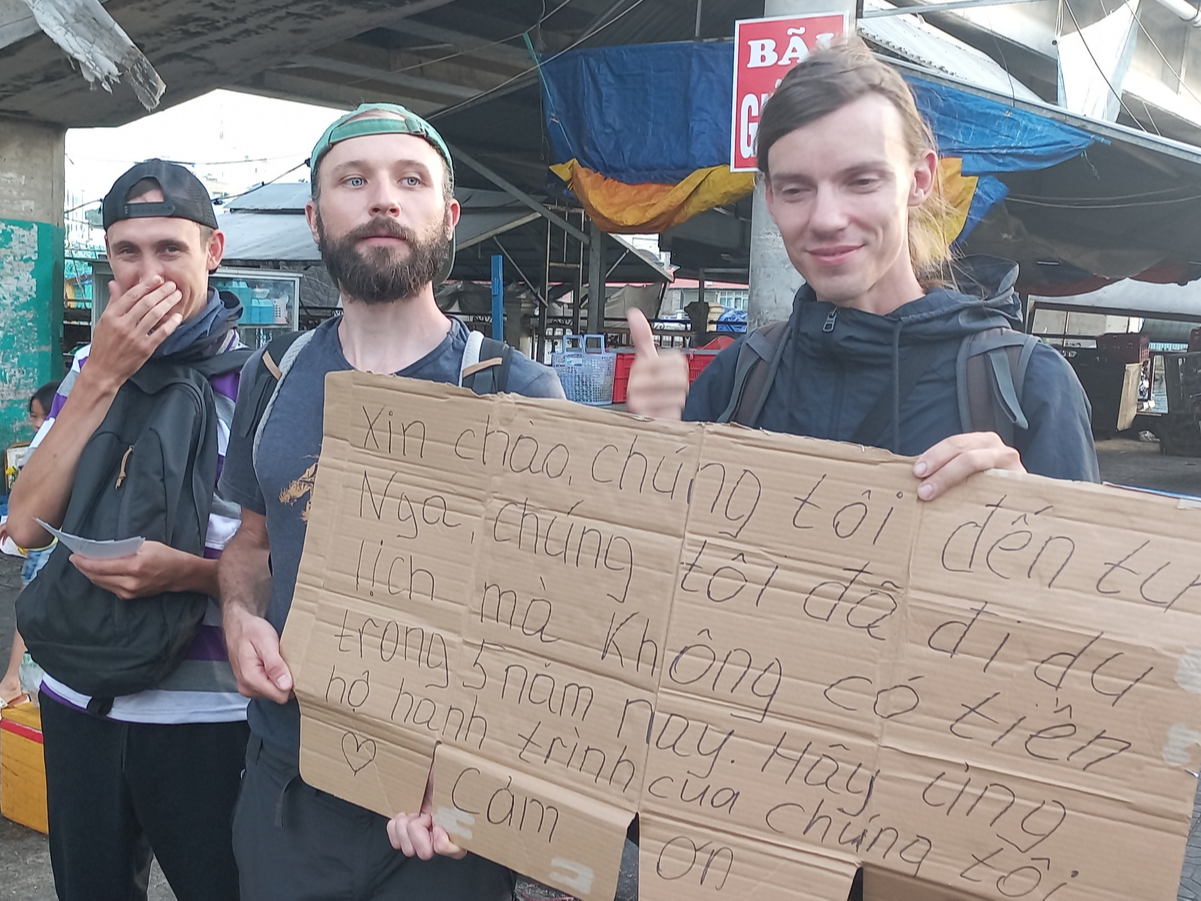 BÃI
Xin chào, chúng tôi đến từ
Nga, chúng tôi đã đi du
lịch mà không có tiền
trong 5 năm nay. Hãy ủng
hộ hành trình của chúng tôi
♡ Cảm ơn